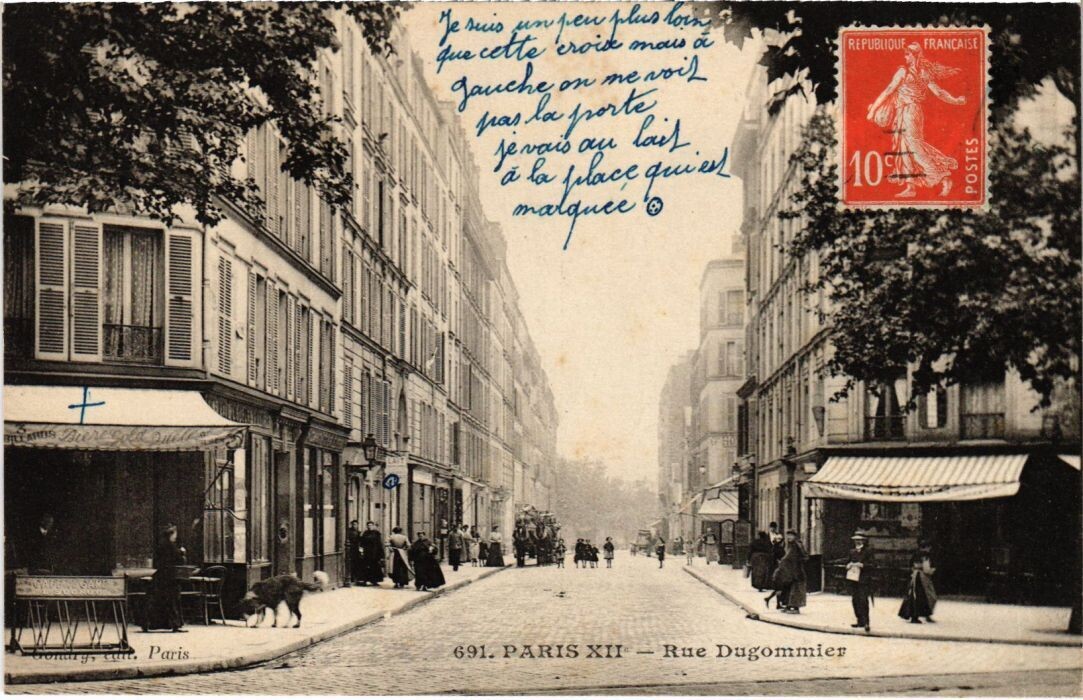 Je suis un peu plus loin
que cette croix mais à
gauche on ne voit
pas la porte
je vais au lait
à la place qui est
marquée
REPUBLIQUE FRANÇAISE
10c
POSTES
BILLARDS Bière
691. PARIS XIIe — Rue Dugommier
Gondry, édit. Paris